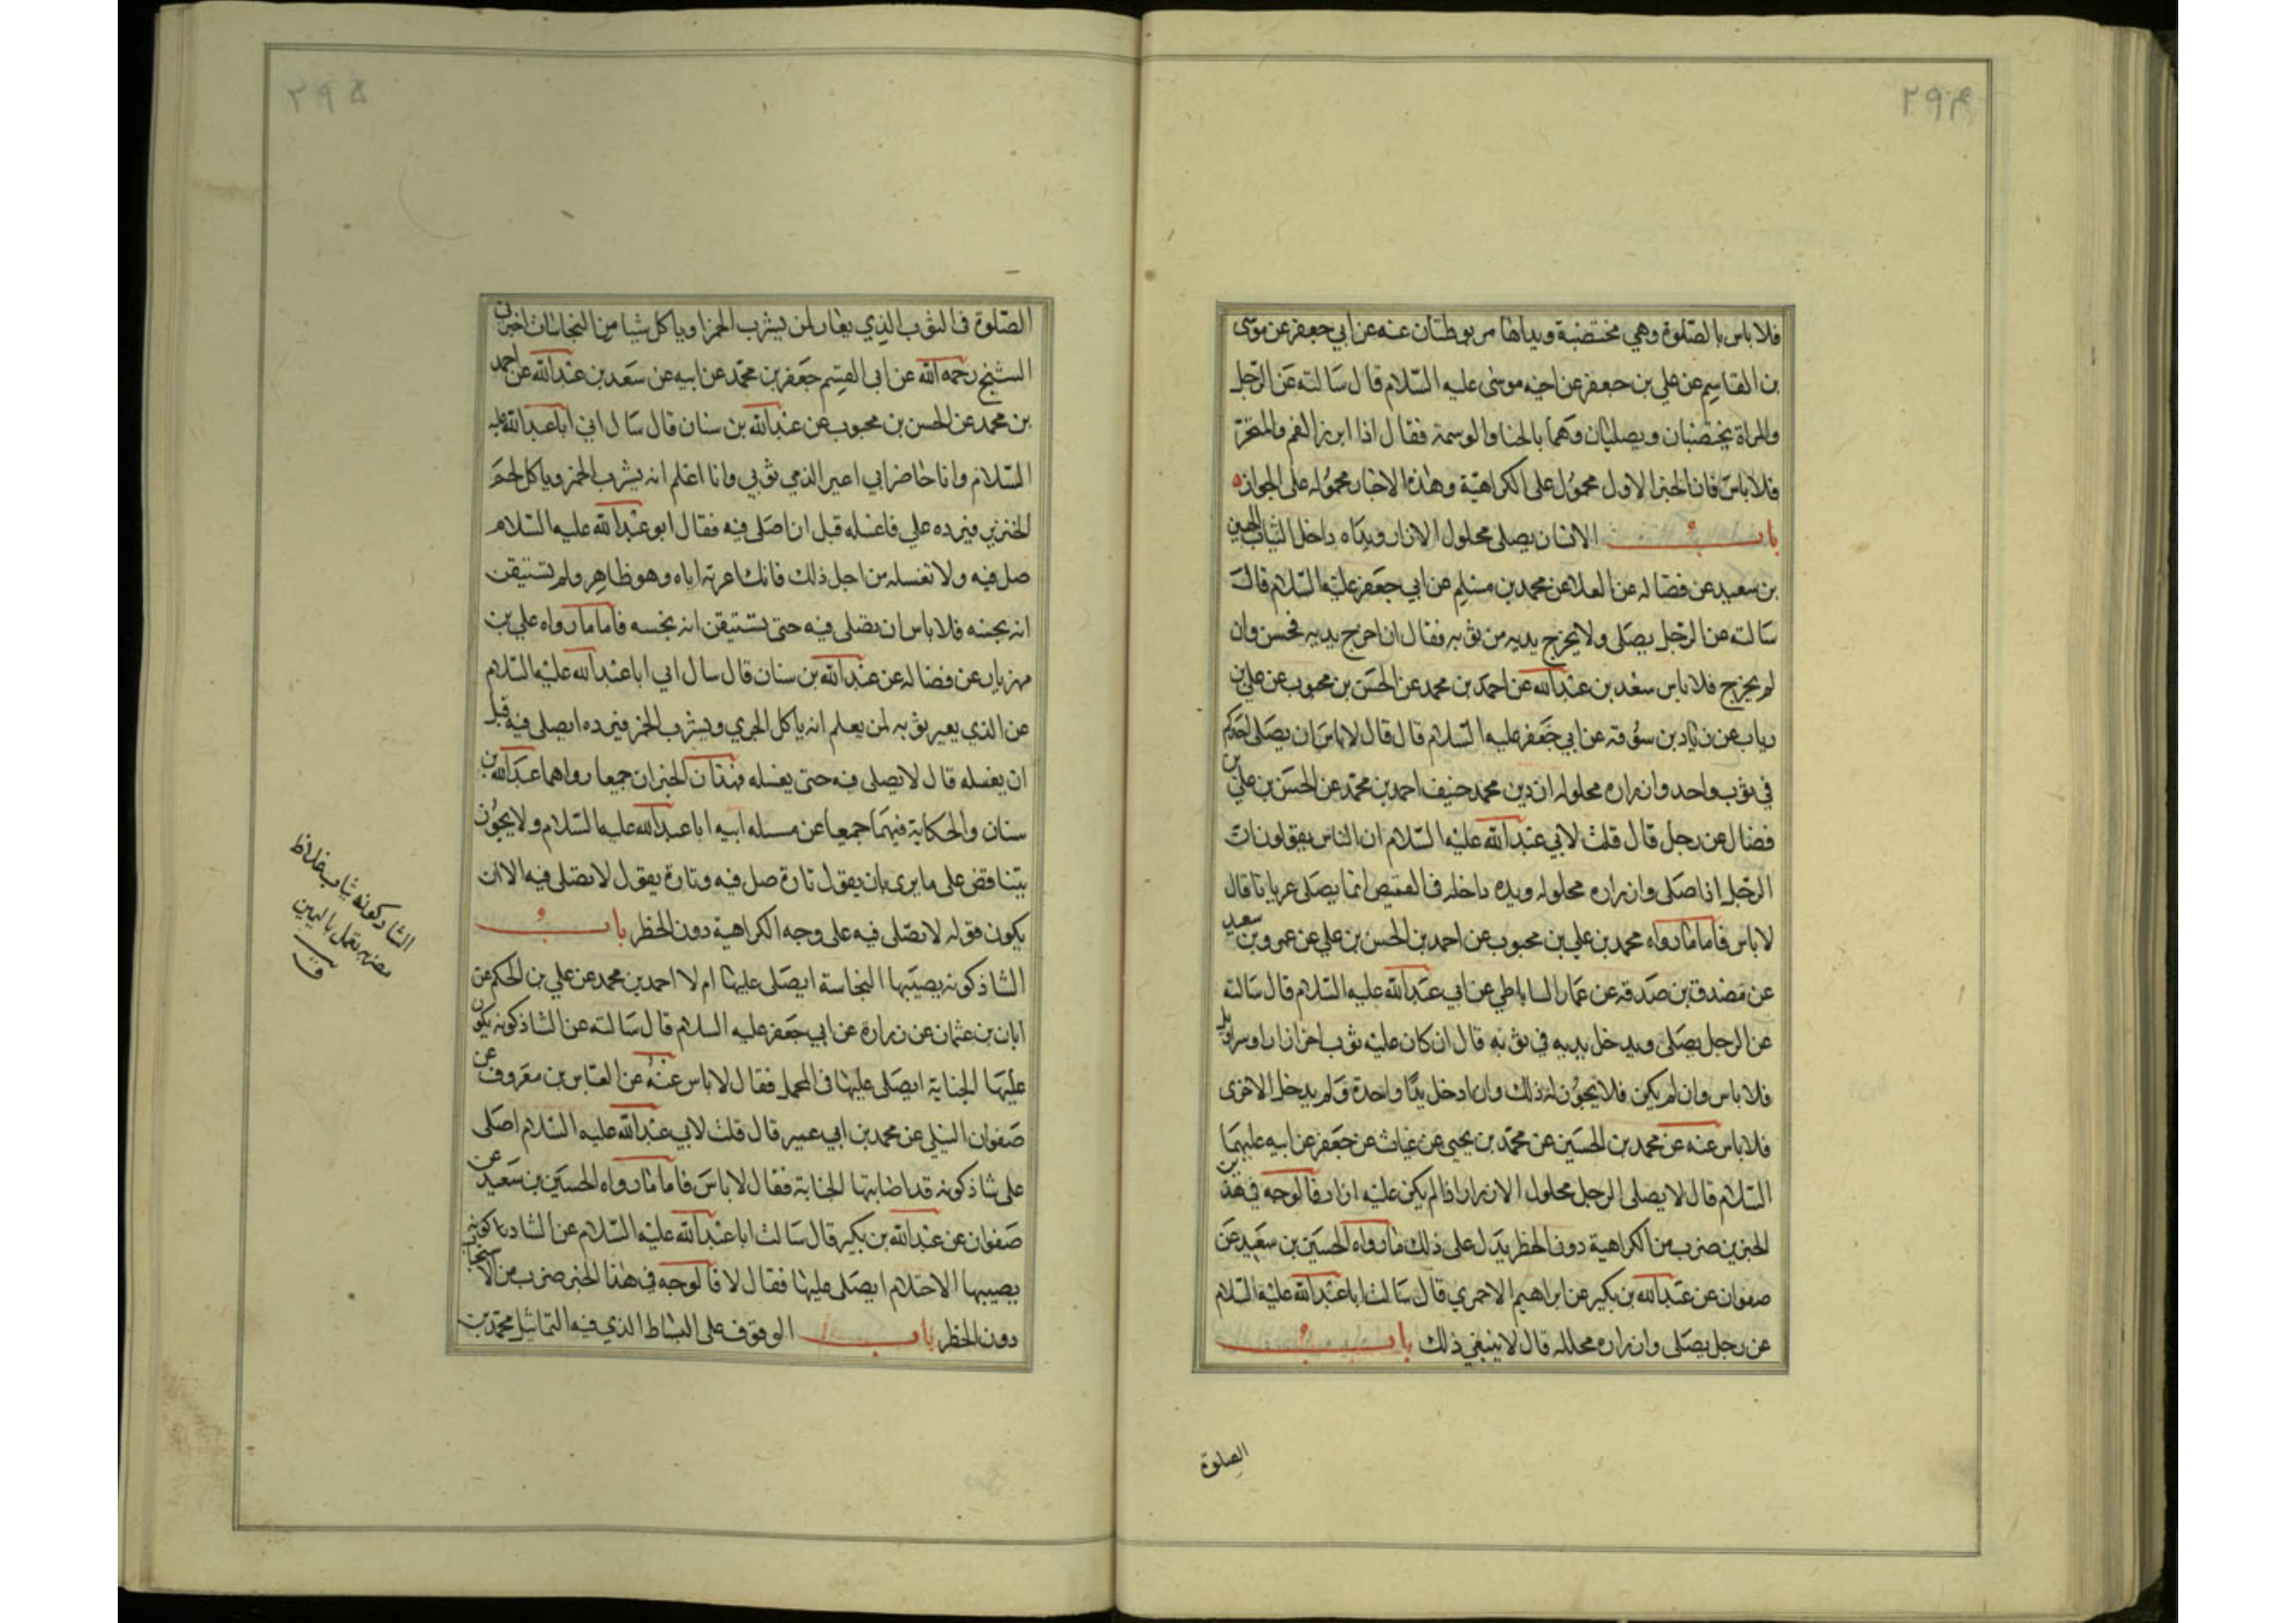 ٢٩٤
فلا باس بالصلوة وهي مختضبة ويداها مربوطتان عنه عن ابي جعفر عن موسى
بن القاسم عن علي بن جعفر عن اخيه موسى عليه السلام قال سالته عن الرجل
والمراة يختضبان ويصليان وهما بالحنا والوسمة فقال اذا ابرز الفم والمنخر
فلا باس فان الخبر الاول محمول على الكراهية وهذه الاخبار محمولة على الجواز
باب الانسان يصلى محلول الازار ويداه داخل الثياب الحسين
بن سعيد عن فضاله عن العلا عن محمد بن مسلم عن ابي جعفر عليه السلام قال
سالته عن الرجل يصلى ولا يخرج يديه من ثوبه فقال ان اخرج يديه فحسن وان
لم يخرج فلا باس سعد بن عبدالله عن احمد بن محمد عن الحسن بن محبوب عن علي بن
رياب عن زياد بن سوقة عن ابي جعفر عليه السلام قال قال لا باس ان يصلى احدكم
في ثوب واحد وازراره محلوله ان دين محمد حنيف احمد بن محمد عن الحسن بن علي بن
فضال عن رجل قال قلت لابي عبدالله عليه السلام ان الناس يقولون ان
الرجل اذا صلى وازراره محلوله ويده داخله في القميص انما يصلى عريانا قال
لا باس فاما ما رواه محمد بن علي بن محبوب عن احمد بن الحسن بن علي عن عمرو بن سعيد
عن مصدق بن صدقه عن عمار الساباطي عن ابي عبدالله عليه السلام قال سالته
عن الرجل يصلى ويدخل يديه في ثوبه قال ان كان عليه ثوب اخر ازار او سراويل
فلا باس وان لم يكن فلا يجوز له ذلك وان ادخل يدا واحدة ولم يدخل الاخرى
فلا باس عنه عن محمد بن الحسين عن محمد بن يحيى عن غياث عن جعفر عن ابيه عليهما
السلام قال لا يصلى الرجل محلول الازرار اذا لم يكن عليه ازار فالوجه في هذين
الخبرين ضرب من الكراهية دون الحظر يدل على ذلك ما رواه الحسين بن سعيد عن
صفوان عن عبدالله بن بكير عن ابراهيم الاحمري قال سالت ابا عبدالله عليه السلام
عن رجل يصلى وازراره محلله قال لا ينبغي ذلك باب
الصلوة
٢٩۵
الصلوة في الثوب الذي يعار لمن يشرب الخمر او ياكل شيا من النجاسات اخبرني
الشيخ رحمه الله عن ابي القسم جعفر بن محمد عن ابيه عن سعد بن عبدالله عن احمد
بن محمد عن الحسن بن محبوب عن عبدالله بن سنان قال سال ابي ابا عبدالله عليه
السلام وانا حاضر ابي اعير الذمي ثوبي وانا اعلم انه يشرب الخمر وياكل لحم
الخنزير فيرده علي فاغسله قبل ان اصلى فيه فقال ابو عبدالله عليه السلام
صل فيه ولا تغسله من اجل ذلك فانك اعرته اياه وهو طاهر ولم تستيقن
انه نجسه فلا باس ان تصلى فيه حتى تستيقن انه نجسه فاما ما رواه علي بن
مهزيار عن فضاله عن عبدالله بن سنان قال سال ابي ابا عبدالله عليه السلام
عن الذي يعير ثوبه لمن يعلم انه ياكل الجري ويشرب الخمر فيرده ايصلى فيه قبل
ان يغسله قال لا يصلى فيه حتى يغسله فهذان الخبران جميعا رواهما عبدالله بن
سنان والحكاية فيهما جميعا عن مسله ابيه ابا عبدالله عليه السلام ولا يجوز ان
يتناقض على ما يرى بان يقول تارة صل فيه وتارة يقول لا تصلى فيه الا ان
يكون قوله لا تصلى فيه على وجه الكراهية دون الحظر باب
الشاذكونه يصيبها النجاسة ايصلى عليها ام لا احمد بن محمد عن علي بن الحكم عن
ابان بن عثمان عن زرارة عن ابي جعفر عليه السلام قال سالته عن الشاذكونه يكون
عليها الجنابة ايصلى عليها في المحمل فقال لا باس عنه عن العباس بن معروف عن
صفوان النيلى عن محمد بن ابي عمير قال قلت لابي عبدالله عليه السلام اصلى
على شاذكونه قد اصابتها الجنابة فقال لا باس فاما ما رواه الحسين بن سعيد عن
صفوان عن عبدالله بن بكير قال سالت ابا عبدالله عليه السلام عن الشاذكونه
يصيبها الاحتلام ايصلى عليها فقال لا فالوجه في هذا الخبر ضرب من الاستحباب
دون الحظر باب الوقوف على البساط الذي فيه التماثيل محمد بن
الشاذكونه ثياب غلاظ
مضربه تعمل باليمن
ق